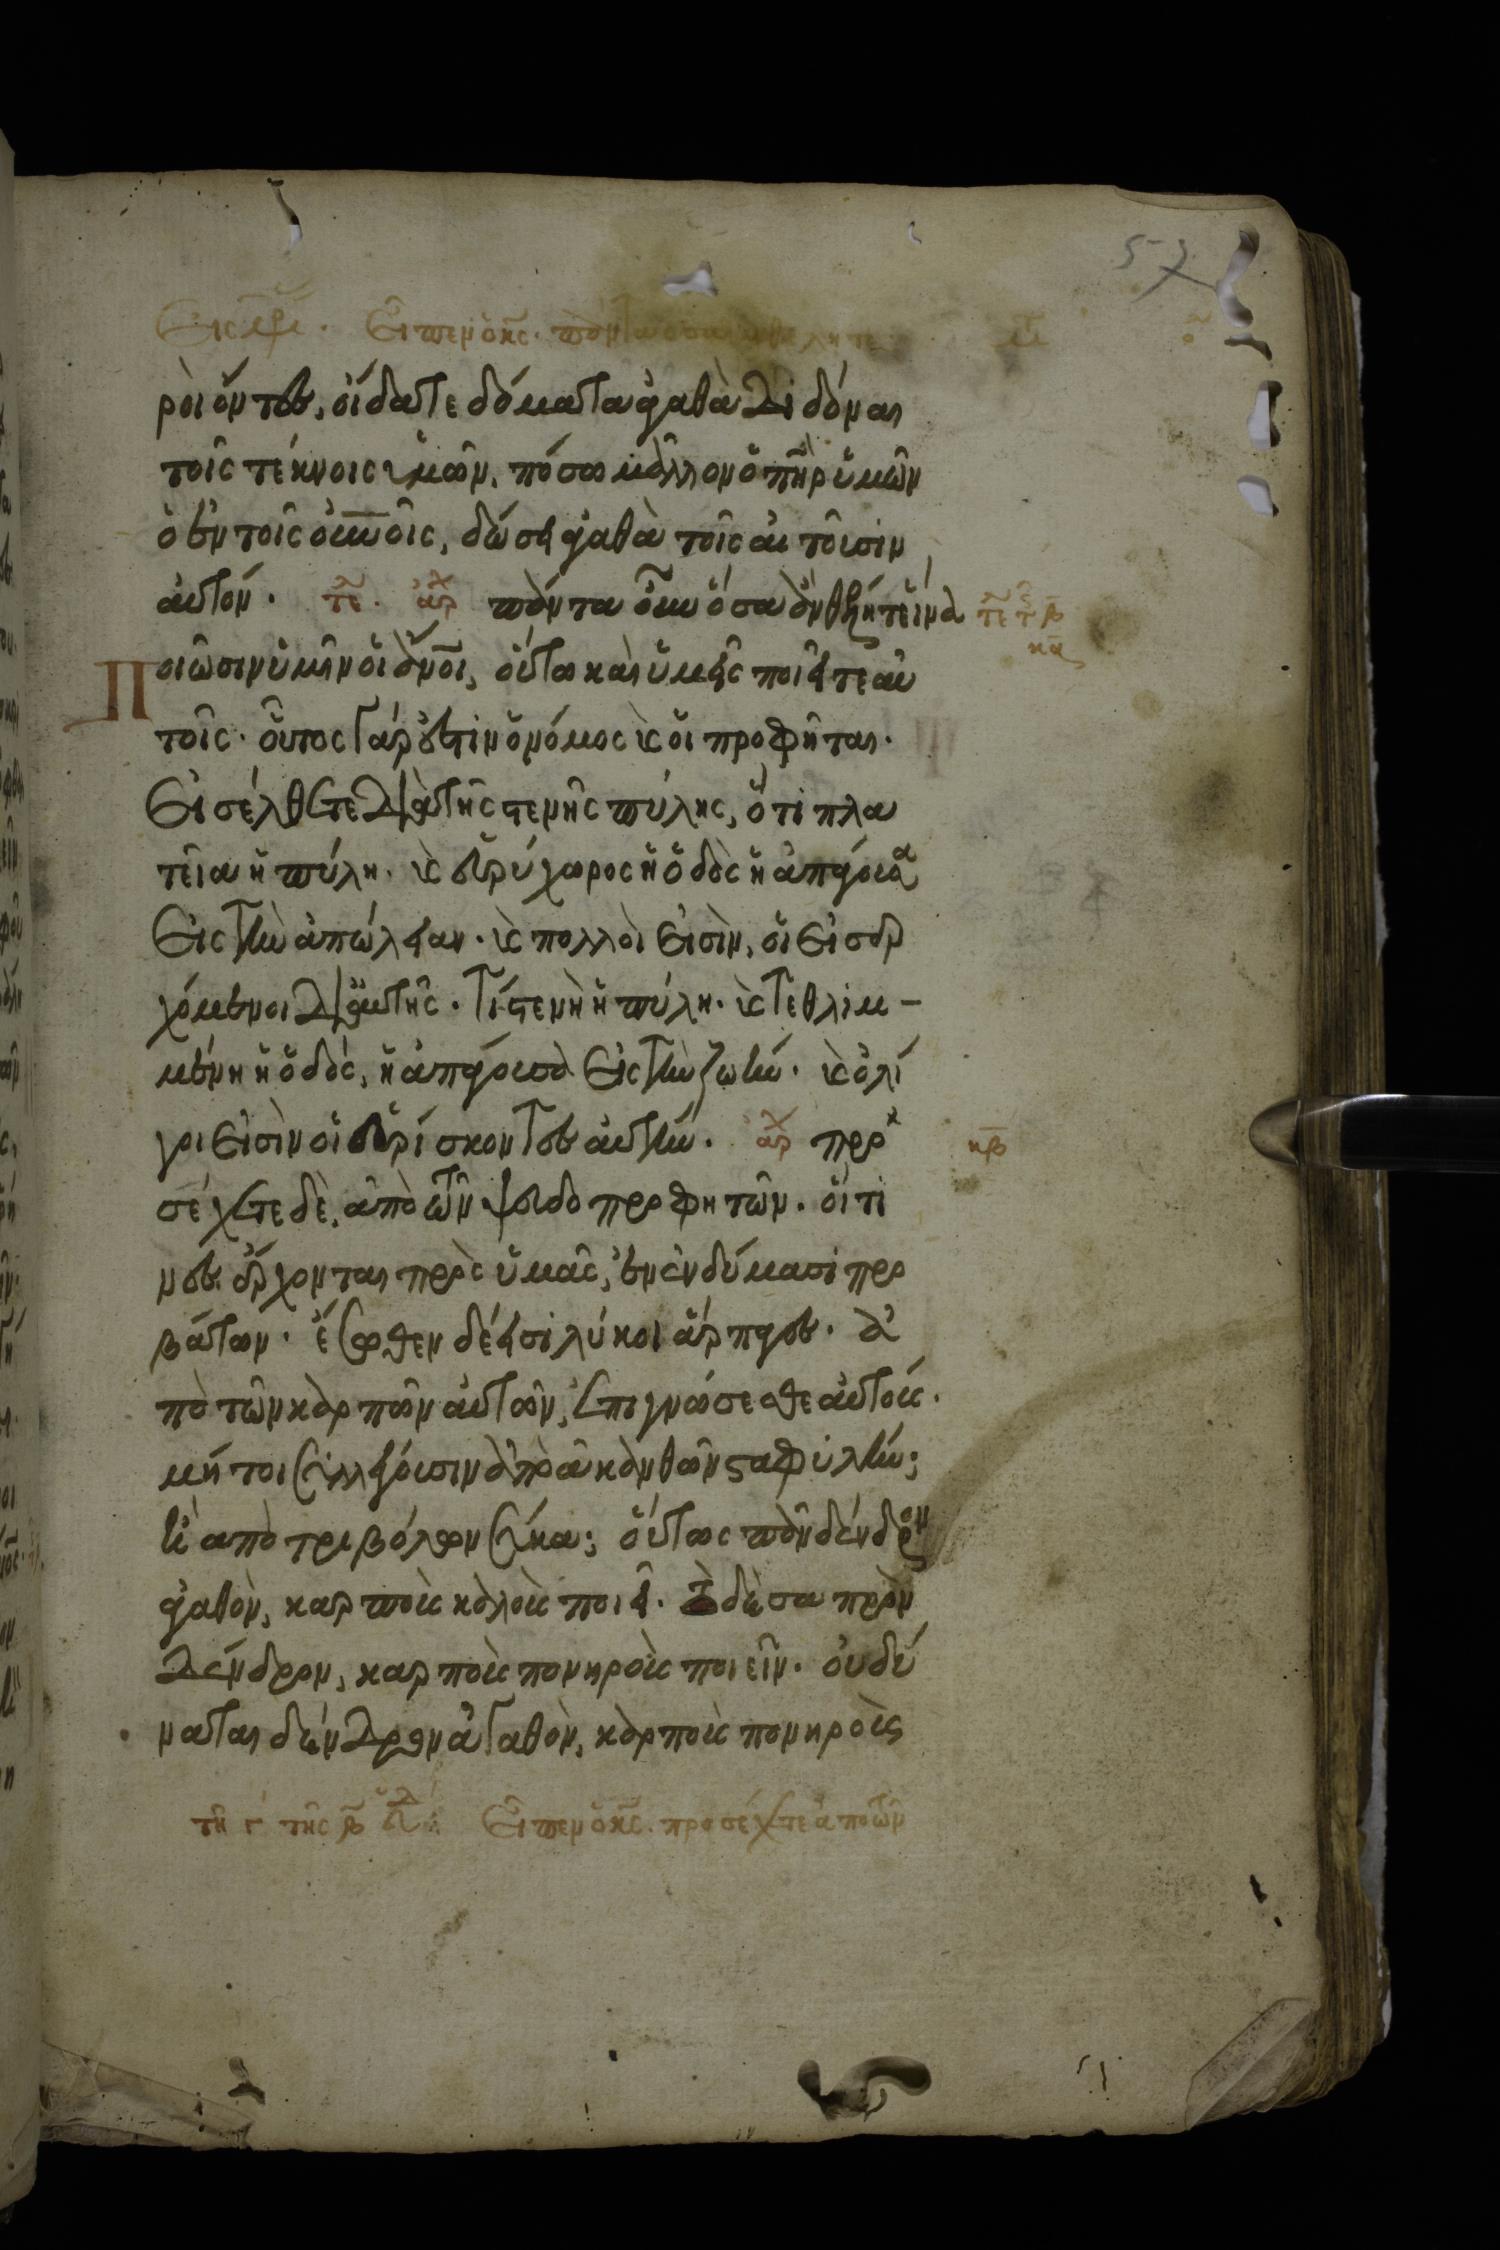 Εἶπεν ὁ κς. πάντα ὅσα ἂν θέλητε
ροὶ ὄντες, οἴδατε δόματα ἀγαθὰ διδόναι
τοῖς τέκνοις ὑμῶν, πόσω μᾶλλον ὁ πηρ ὑμῶν
ὁ ἐν τοῖς οὐνοῖς, δώσει ἀγαθὰ τοῖς αἰτοῦσιν
αὐτόν. τε. ἀρχ πάντα οὖν ὅσα ἂν θέλητε ἵνα
ποιῶσιν ὑμῖν οἱ ἄνοι, οὕτω καὶ ὑμεῖς ποιεῖτε αὐ
τοῖς. οὗτος γάρ ἐστιν ὁ νόμος κ οἱ προφῆται.
Εἰσέλθετε διὰ τῆς στενῆς πύλης, ὅτι πλα
τεῖα ἡ πύλη. κ εὐρύχωρος ἡ ὁδὸς ἡ ἀπάγουσα
εἰς τὴν ἀπώλειαν. κ πολλοὶ εἰσὶν, οἱ εἰσερ
χόμενοι δι αὐτῆς. Τί στενὴ ἡ πύλη. κ τεθλιμ-
μένη ἡ ὁδός, ἡ ἀπάγουσα εἰς τὴν ζωήν. κ ὀλί
γοι εἰσὶν οἱ εὑρίσκοντες αὐτήν. ἀρχ προ κβ
σέχετε δὲ, ἀπὸ τῶν ψευδοπροφητῶν. οἵτι
νες ἔρχονται πρὸς ὑμᾶς, ἐν ἐνδύμασι προ
βάτων. ἔσωθεν δέ εἰσι λύκοι ἅρπαγες. ἀ
πὸ τῶν καρπῶν αὐτῶν, ἐπιγνώσεσθε αὐτούς.
μήτοι συλλέγουσιν ἀπὸ ἀκανθῶν σταφυλήν;
ἢ ἀπὸ τριβόλων σύκα; οὕτως πᾶν δένδρον
ἀγαθὸν, καρποὺς καλοὺς ποιεῖ. τὸ δὲ σαπρὸν
δένδρον, καρποὺς πονηροὺς ποιεῖν. οὐ δύ
ναται δένδρον ἀγαθὸν, καρποὺς πονηροὺς
τῆ γ τῆς β Εἶπεν ὁ κς. προσέχετε ἀπὸ τῶν